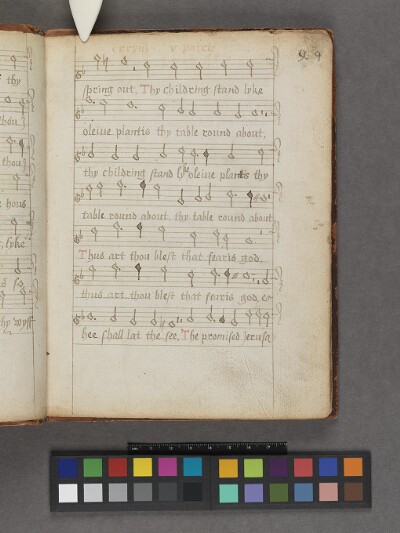 cxxviii v partis
29
spring out, Thy childring stand lyke
oleiue plantis thy table round about,
thy childring stand lyk oleiue plantis thy
table round about, thy table round about
Thus art thou blest that fearis god,
thus art thou blest that fearis god, &
hee shall lat the see, The promised Jerusa
thy
thou
thou
hous
lyke
thy wyff